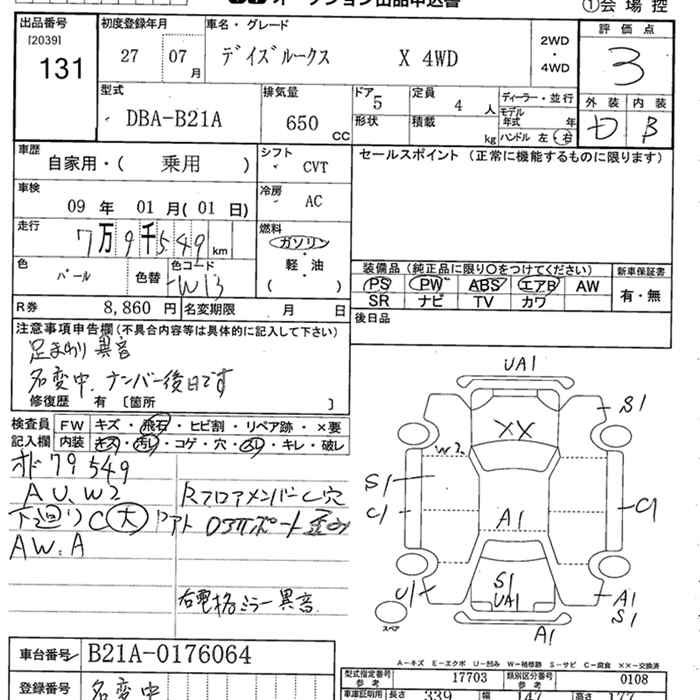 オークション出品申込書
①会場控
出品番号 [2039] 131
初度登録年月 27 07 月
車名・グレード デイズルークス X 4WD
2WD ・ 4WD
評価点 3
型式 DBA-B21A
排気量 650 CC
ドア 5
形状
定員 4 人
積載 kg
ディーラー・並行
モデル年式 年
ハンドル 左・右
外装 内装
D B
車歴 自家用・( 乗用 )
シフト CVT
セールスポイント (正常に機能するものに限ります)
車検 09 年 01 月(01 日)
冷房 AC
走行 7万9千549 km
燃料 ガソリン 軽・油 ( )
色 パール 色替
色コード W13
装備品 (純正品に限り○をつけてください)
新車保証書
PS PW ABS エアB AW
SR ナビ TV カワ
有・無
R券 8,860 円 名変期限 月 日
後日品
注意事項申告欄(不具合内容等は具体的に記入して下さい)
足まわり異音
名変中、ナンバー後日です
修復歴 有 [箇所 ]
検査員記入欄
FW キズ・飛石・ヒビ割・リペア跡・×要
内装 キズ・汚れ・コゲ・穴・スレ・キレ・破レ
オド 79549
AU、W2
下廻りC大
AW:A
RフロアメンバーC穴
コアトロアサポート歪み
右電格ミラー異音
UA1
S1
XX
W2
S1
C1
C1
A1
S1
UA1
U1
A1
S1
A1
スペア
車台番号 B21A-0176064
A-キズ E-エクボ U-凹み W-補修跡 S-サビ C-腐食 XX-交換済
登録番号 名変中
型式指定番号 参考 17703
類別区分番号 参考 0108
車庫証明用 長さ 339 幅 147 高さ 177